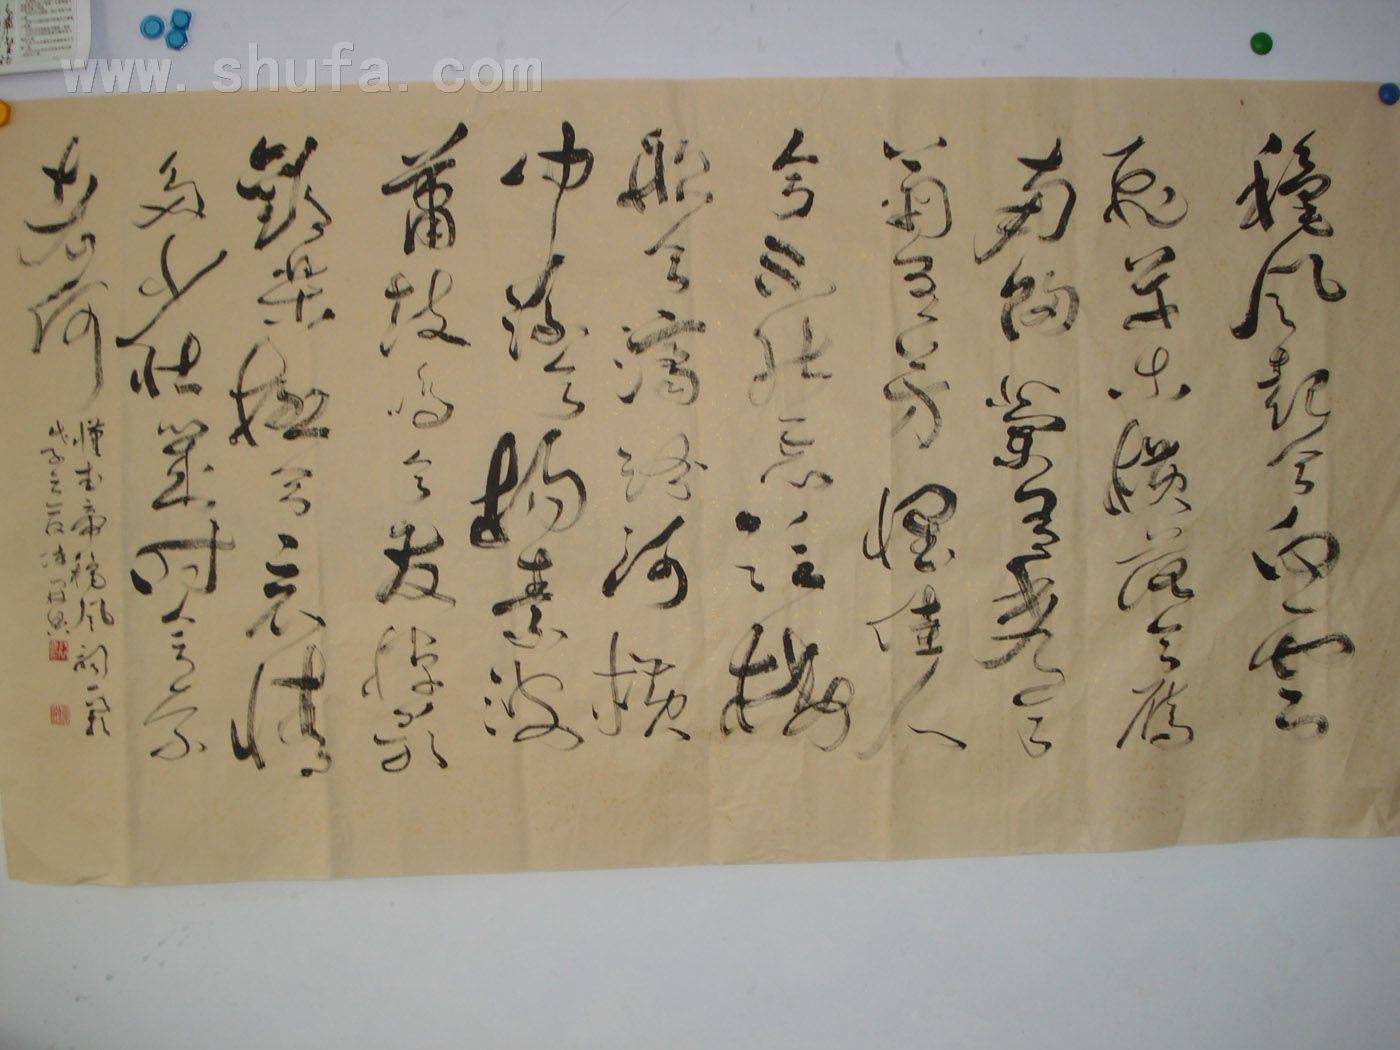 www.shufa.com
穐风起兮白雲
飛草木黄落兮雁
南歸蘭有秀兮
菊有芳懷佳人
兮不能忘泛樓
船兮濟汾河横
中流兮揚素波
簫鼓鳴兮发棹歌
歡樂極兮哀情
多少壯幾時兮奈
老何
漢武帝穐風詞一
戊子